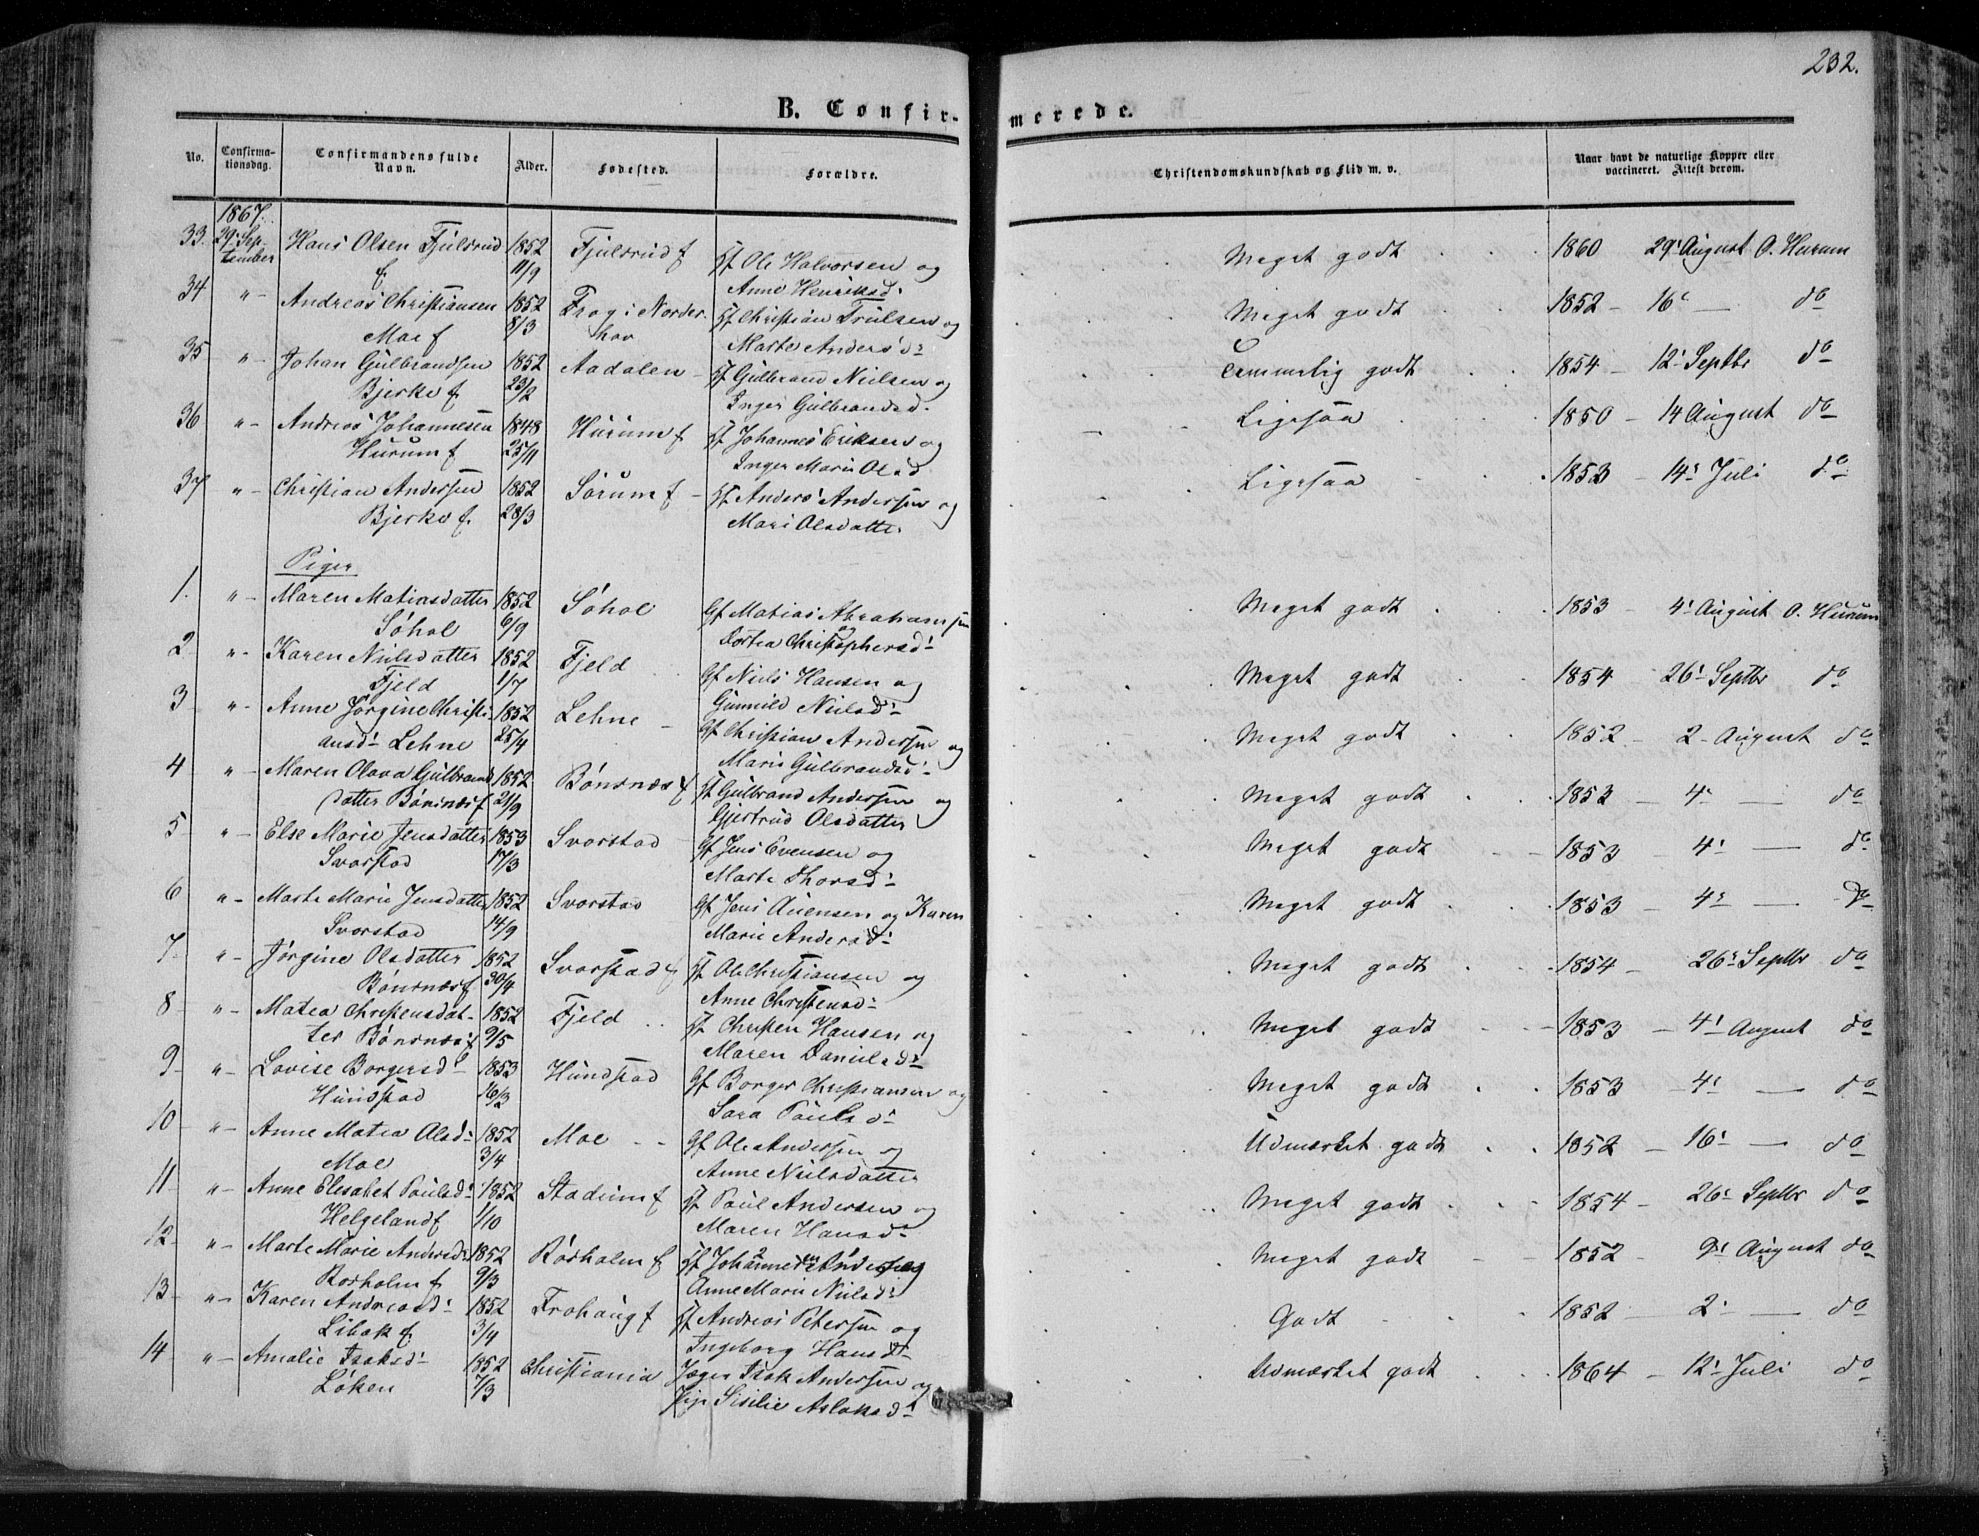 232.
B. Confirmerede.
No. Confirmationsdag. Confirmandens fulde Navn. Alder. Fødested. Forældre. Christendomskundskab og Flid m. v. Naar havt de naturlige Kopper eller vaccineret. Attest derom.
1867.
33. 29' Sep- Hans Olsen Fjulsrud 1852 Fjulsrud f gf Ole Halvorsen og Meget godt 1860 29' August O. Hurum
tember f. 11/9 Anne Henriksd:
34 "- Andreas Christiansen 1852 Frog i Norder- gf Christian Trulsen og Meget godt 1852 - 16' — do
Moe f 8/3 hov Marte Andersd:
35 "- Johan Gulbrandsen 1852 Aadalen - gf Gulbrand Nielsen og Temmelig godt 1854 - 12' Septbr do
Bjerke f. 23/2 Inger Gulbrandsd.
36 "- Andreas Johannesen 1848 Hurum f gf Johannes Eriksen og Ligesaa 1850 - 14 August do
Hurum f 25/11 Inger Marie Olsd
37 "- Christian Andersen 1852 Sørum f - gf Anders Andersen og Ligesaa 1853 - 14' Juli do
Bjerke f. 28/3 Mari Olsdatter
Piger
1. "- Maren Matiasdatter 1852 Søhol Gf Matias Abrahamsen Meget godt 1853 - 4' August O. Hurum
Søhol 6/9 og Dortea Christophersd:
2 "- Karen Nilsdatter 1852 Fjeld Gf Niels Hansen og Meget godt 1854 - 26' Septbr do
Fjeld 1/7 Gunnild Nielsd:
3 "- Anne Jørgine Christi- 1852 Lehne - Gf Christian Andersen og Meget godt 1852 - 2 - August do
ansd: Lehne 25/4 Marie Gulbrandsd:
4 "- Maren Olava Gulbrand 1852 Bønsnæs f gf Gulbrand Andersen og Meget godt 1853 - 4' — do
datter Bønsnæs f 21/9 Gjertrud Olsdatter
5 "- Else Marie Jensdatter 1853 Svarstad gf Jens Evensen og Meget godt 1853 - 4' — do
Svarstad 17/3 Marte Thorsd:
6 "- Marte Marie Jensdatter 1852 Svarstad Gf Jens Auensen og Karen Meget godt 1853 - 4' — do
Svarstad 14/9 Marie Andersd:
7. "- Jørgine Olsdatter 1852 Svarstad f gf Ole Christiansen og Meget godt 1854 - 26' Septbr do
Bønsnæs f 30/4 Anne Christensd:
8 "- Matea Christensdat- 1852 Fjeld .. gf Christen Hansen og Meget godt 1853 - 4' August do
ter Bønsnæs f 9/5 Maren Danielsd:
9 "- Lovise Borgersd: 1853 Hundstad gf Borger Christiansen og Meget godt 1853 - 4' — do
Hundstad 16/3 Sara Paulsd:
10 "- Anne Matea Olsd: 1852 Moe - - gf Ole Andersen og Udmærket godt 1852 - 16' — do
Moe 3/4 Anne Nielsdatter
11 "- Anne Elisabet Paulsd: 1852 Stadum f gf Paul Andersen og Meget godt 1854 - 26' Septbr do
Helgeland f 1/10 Maren Hansd:
12 "- Marte Marie Andersd: 1852 Rørholm f gf Johannes Andersen og Meget godt 1852 - 9' August do
Rorholm f 9/3 Anne Marie Nielsd:
13 "- Karen Andreasd: 1852 Frohaug f gf Andreas Petersen og Godt 1852 - 2' — do
Libak f. 3/4 Ingeborg Hansd:
14 "- Amalie Isaksd: 1852 Christiania Jæger Isak Andersen og Udmærket godt 1864 - 12' Juli do
Løken 7/3 Pige Sisilie Aslaksd: